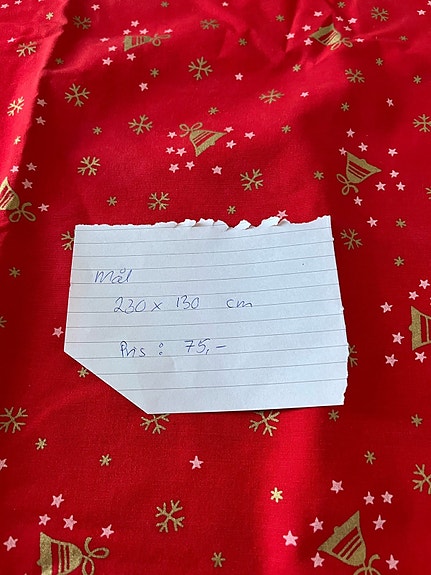 Mål
230 x 130 cm
Pris : 75,-